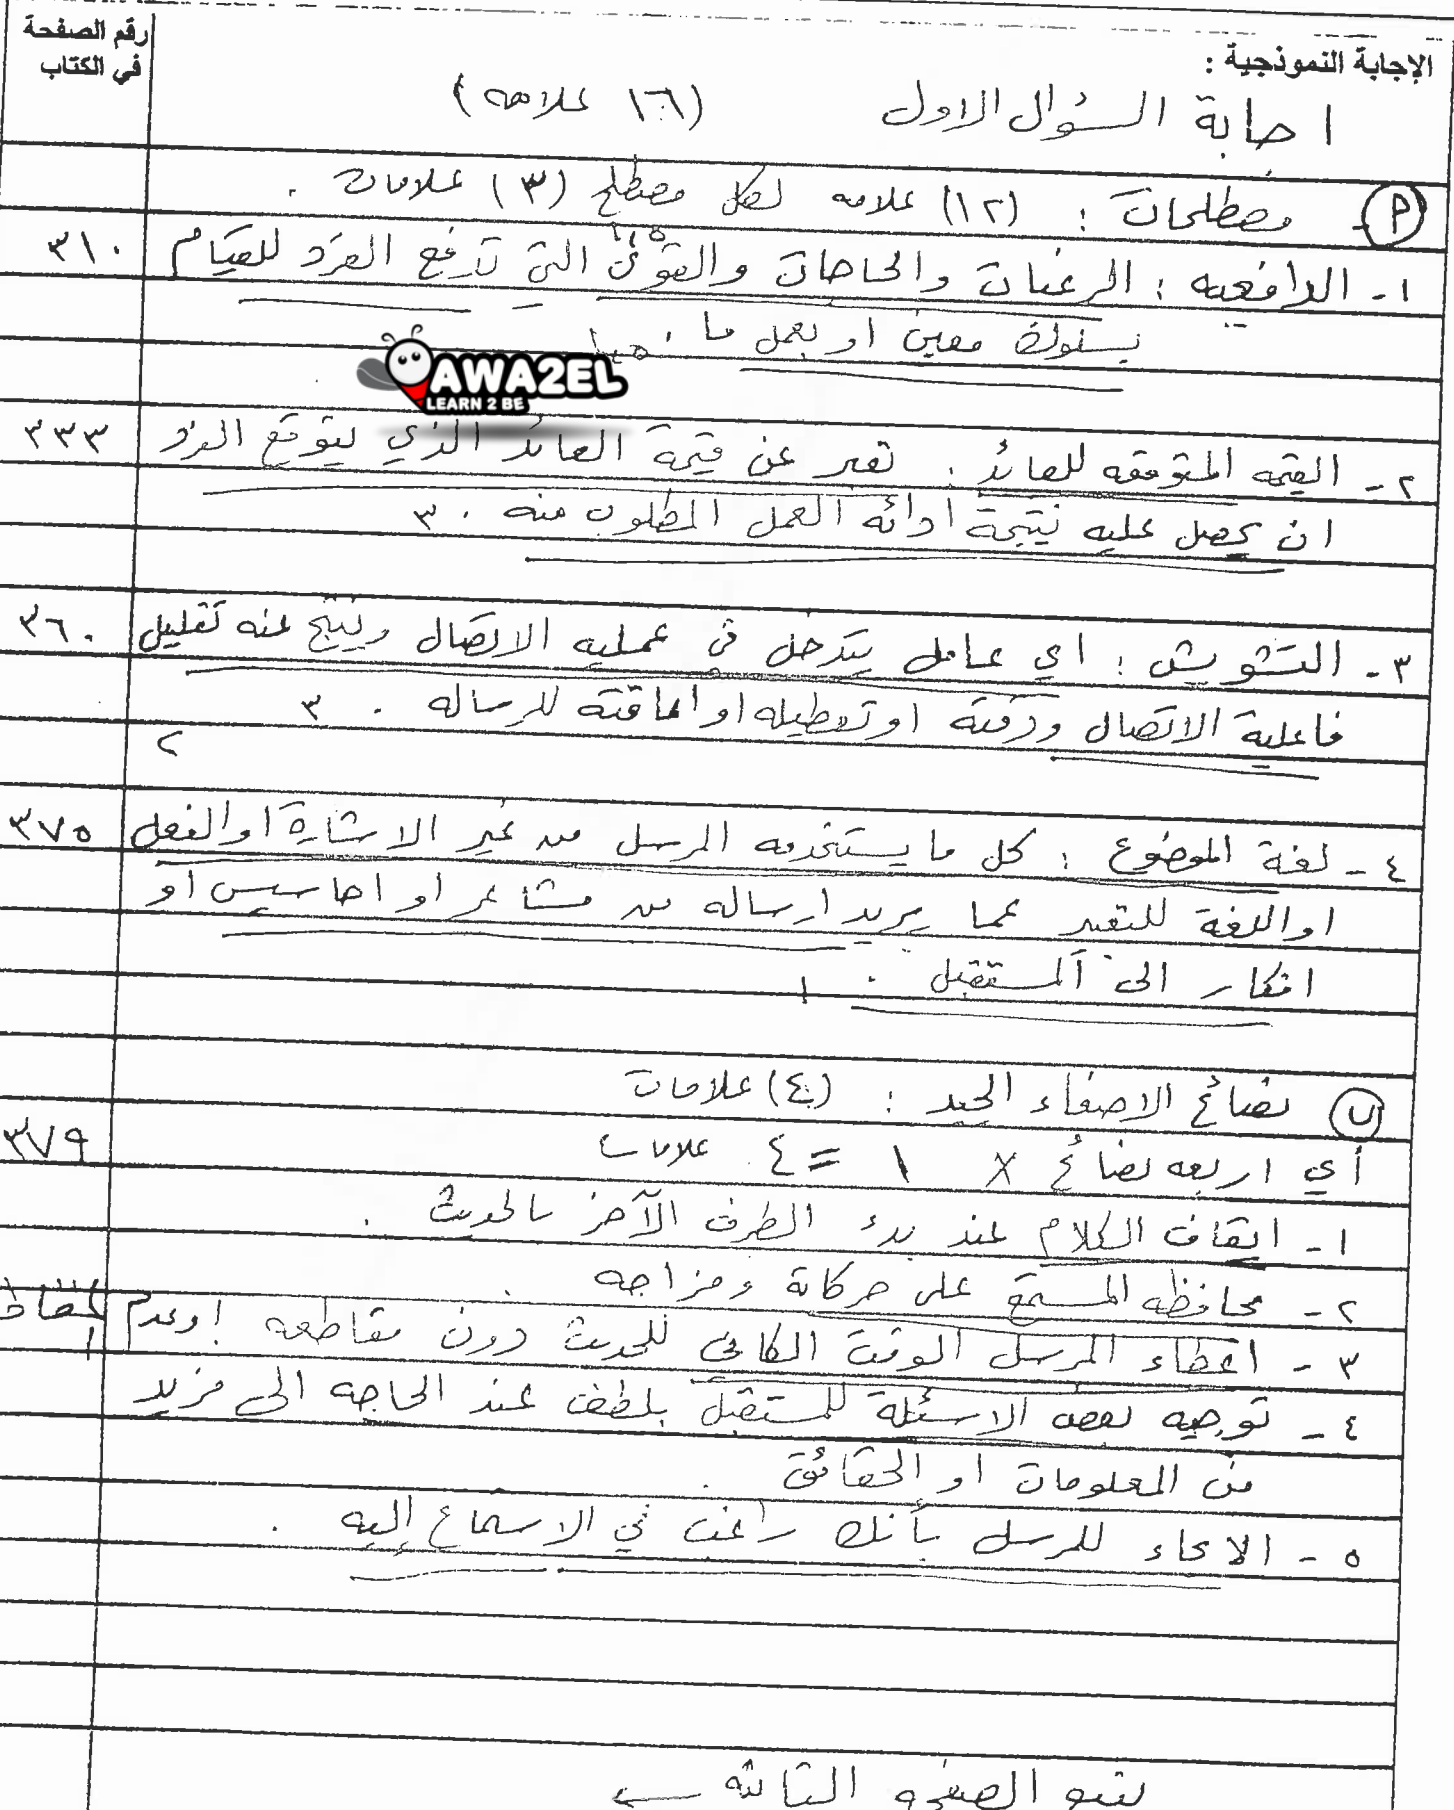 رقم الصفحة
في الكتاب
الإجابة النموذجية :
اجابة السؤال الاول (١٦ علامه)
P مصطلحات : (١٢) علامه لكل مصطلح (٣) علامات .
١- الدافعيه : الرغبات والحاجات والقوى التي تدفع الفرد للقيام ٣١٠
بسلوك معين او بعمل ما .
AWA2EL
LEARN 2 BE
٢- القيمه المتوقعه للعائد : تعبر عن قيمة العائد الذي يتوقع الفرد ٣٣٣
ان يحصل عليه نتيجة ادائه العمل المطلوب منه . ٣
٣- التشويش : اي عامل يتدخل في عمليه الاتصال وينتج عنه تقليل ٣٦٠
فاعلية الاتصال ودقته او تعطيله او اعاقته للرساله . ٣
٢
٤- لغة الموضوع : كل ما يستخدمه المرسل من غير الاشارة او الفعل ٣٧٥
او اللغة للتعبير عما يريد ارساله من مشاعر او احاسيس او
افكار الى المستقبل . ١
ب نصائح الاصغاء الجيد : (٤) علامات
أي اربعه نصائح × ١ = ٤ علامات ٣٧٩
١- ايقاف الكلام عند بدء الطرف الآخر بالحديث .
٢- محافظه المستمع على حركاته ومزاجه .
٣- اعطاء المرسل الوقت الكافي للحديث دون مقاطعه او عدم
٤- توجيه بعض الاسئلة للمستقبل بلطف عند الحاجه الى مزيد
من المعلومات او الحقائق .
٥- الايحاء للمرسل بأنك راغب في الاستماع إليه .
يتبع الصفحه الثانيه ←